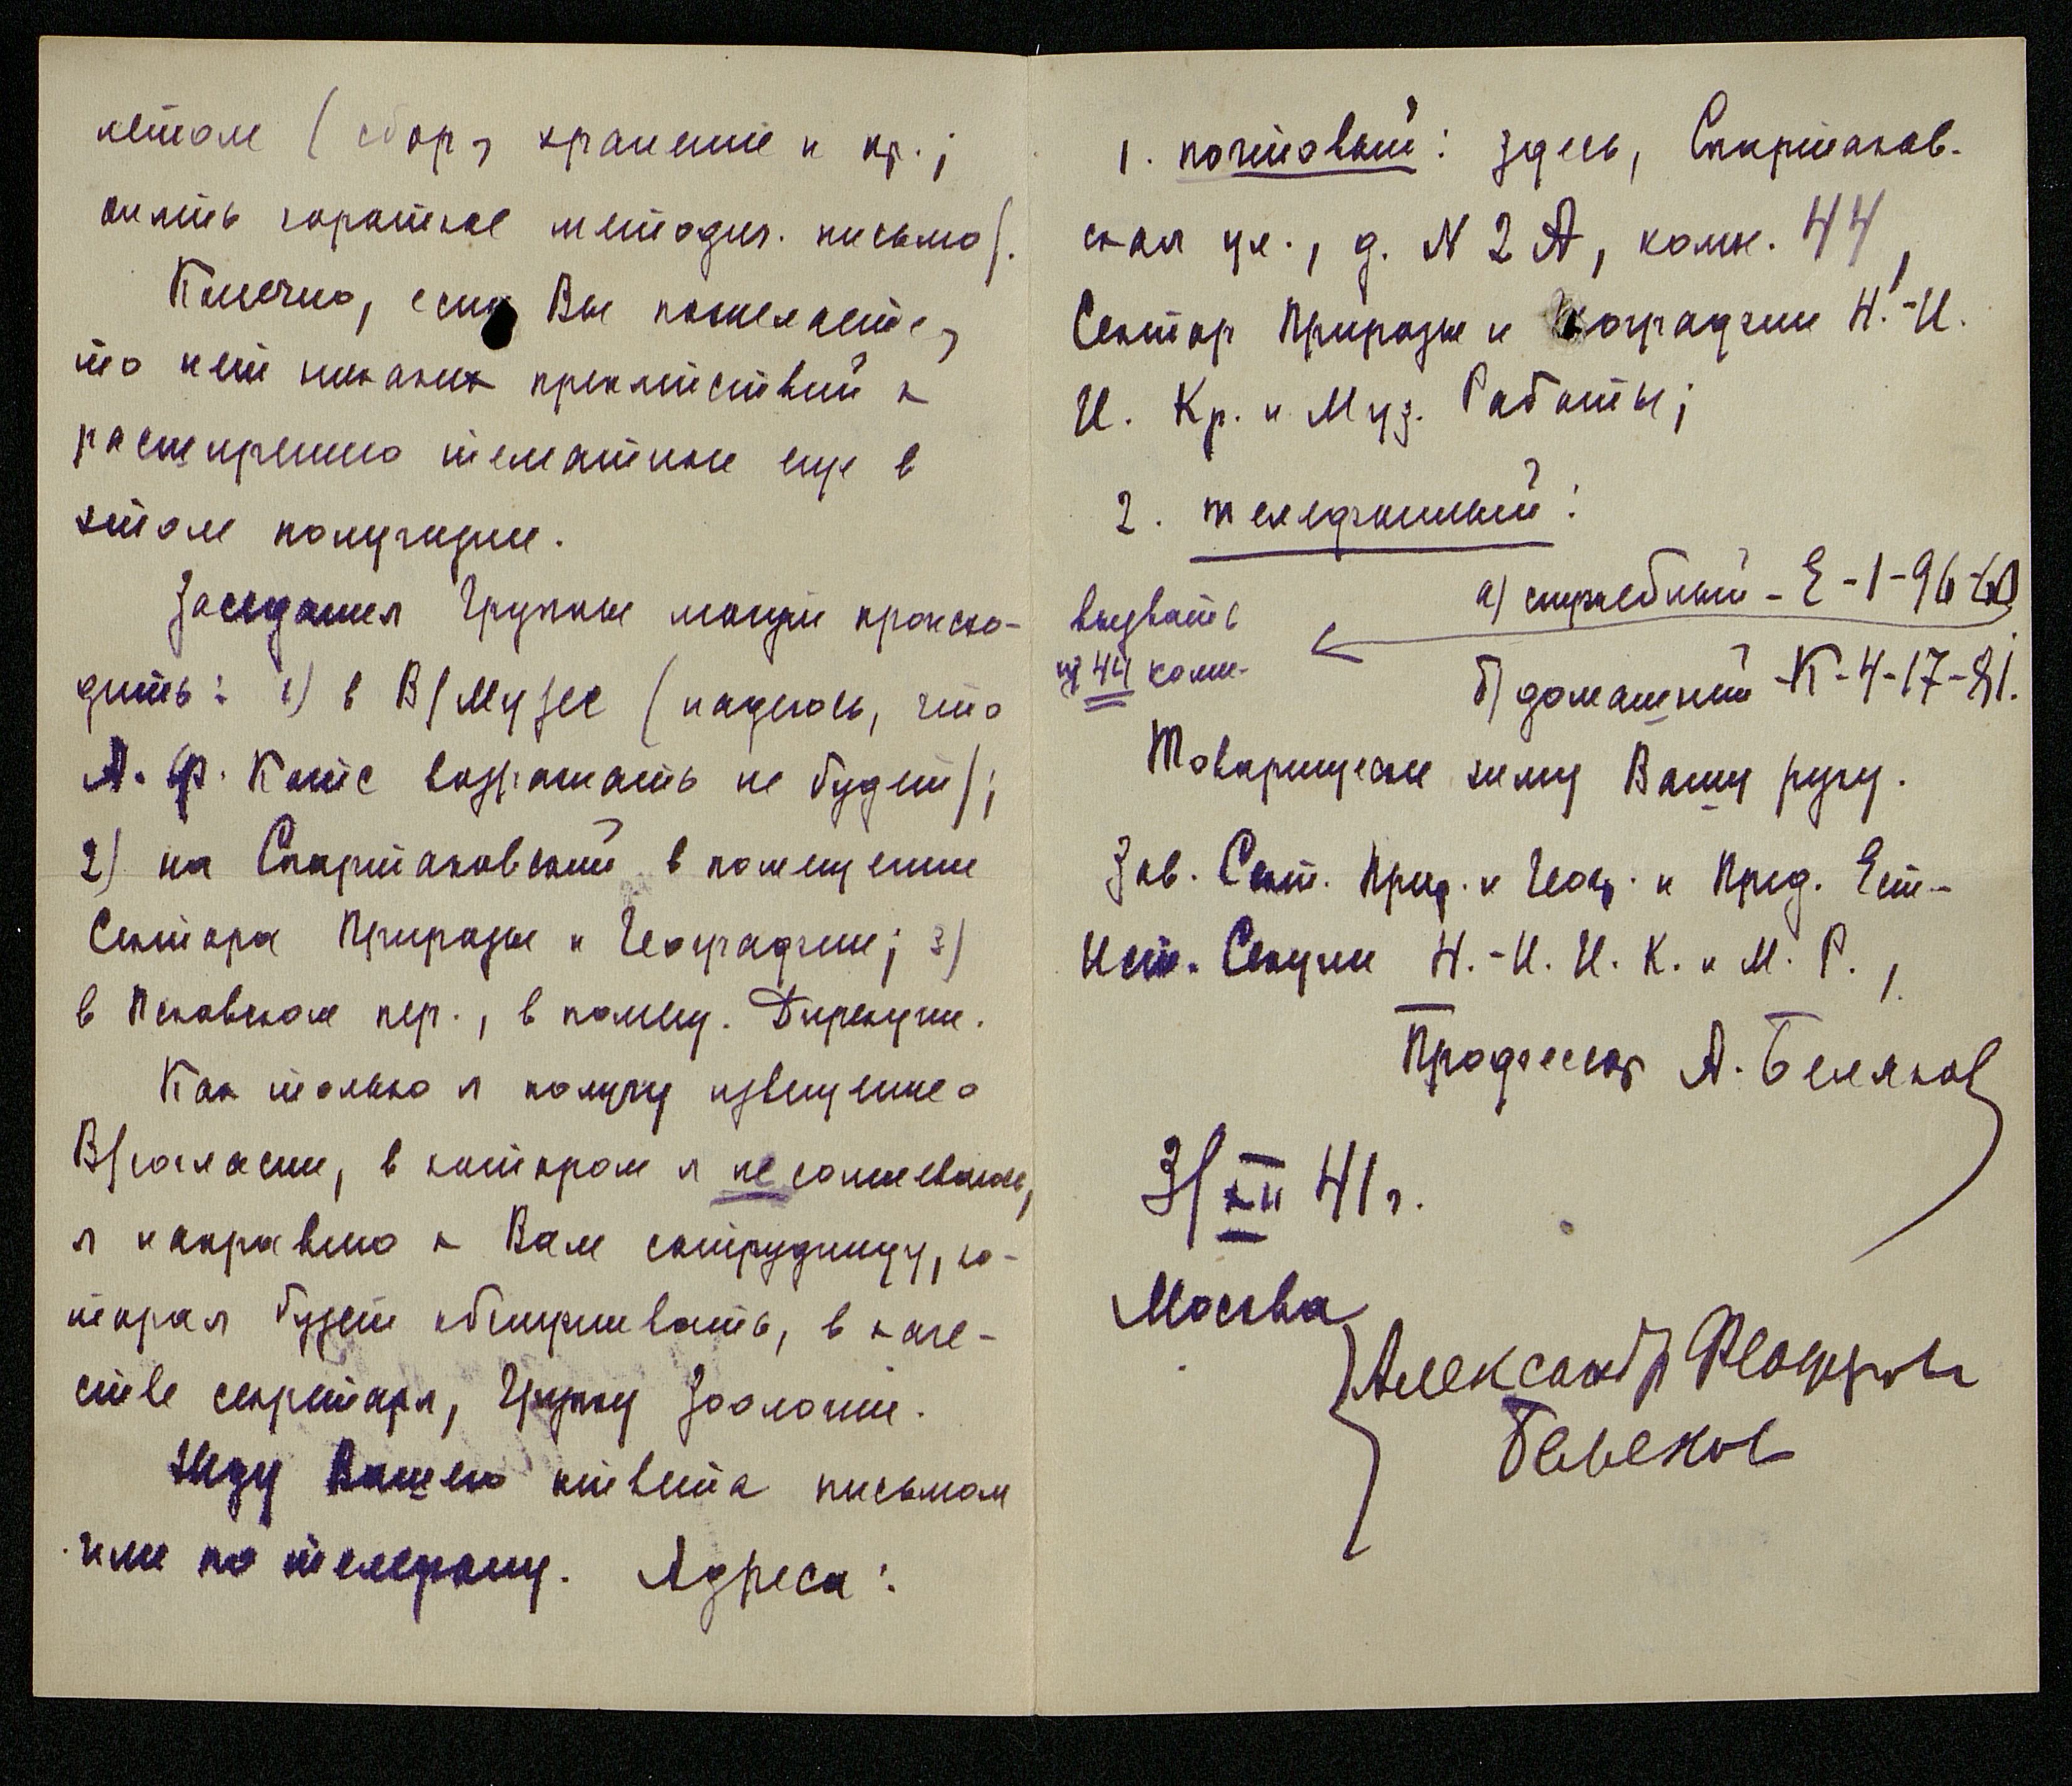 летом (сбор, хранение и пр.;
опять короткое методич. письмо).
Конечно, если Вы пожелаете,
то нет никаких препятствий к
расширению тематики еще в
этом полугодии.
Заседания Группы могут происхо-
дить: 1) в В/Музее (надеюсь, что
А. Ф. Котс возражать не будет);
2) на Спартаковской в помещении
Сектора Природы и Географии; 3)
в Псковском пер., в помещ. Дирекции.
Как только я получу извещение о
В/согласии, в котором я не сомневаюсь,
я направлю к Вам сотрудницу, ко-
торая будет обслуживать, в каче-
стве секретаря, Группу Зоологии.
Жду Вашего ответа письмом
или по телефону. Адреса:
1. почтовый: здесь, Спартаков-
ская ул., д. N 2 А, комн. 44,
Сектор Природы и Географии Н.-И.
И. Кр. и Муз. Работы;
2. телефонный:
а) служебный - Е-1-96-60
вызвать
из 44 комн.
б) домашний - К-4-17-81.
Товарищески жму Вашу руку.
Зав. Сект. Прир. и Геогр. и Пред. Ест-
Ист. Секции Н.-И. И. К. и М. Р.,
Профессор А. Беляков
3/XII 41 г.
Москва
Александр